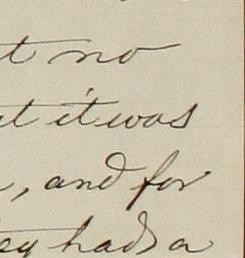 t no
t it was
, and for
ey had a